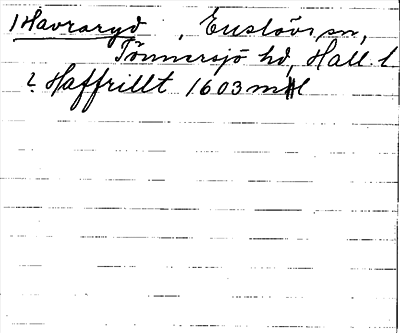 1 Havraryd, Enslövs sn,
Tönnersjö hd, Hall. l
? Haffrillt 1603 mtl